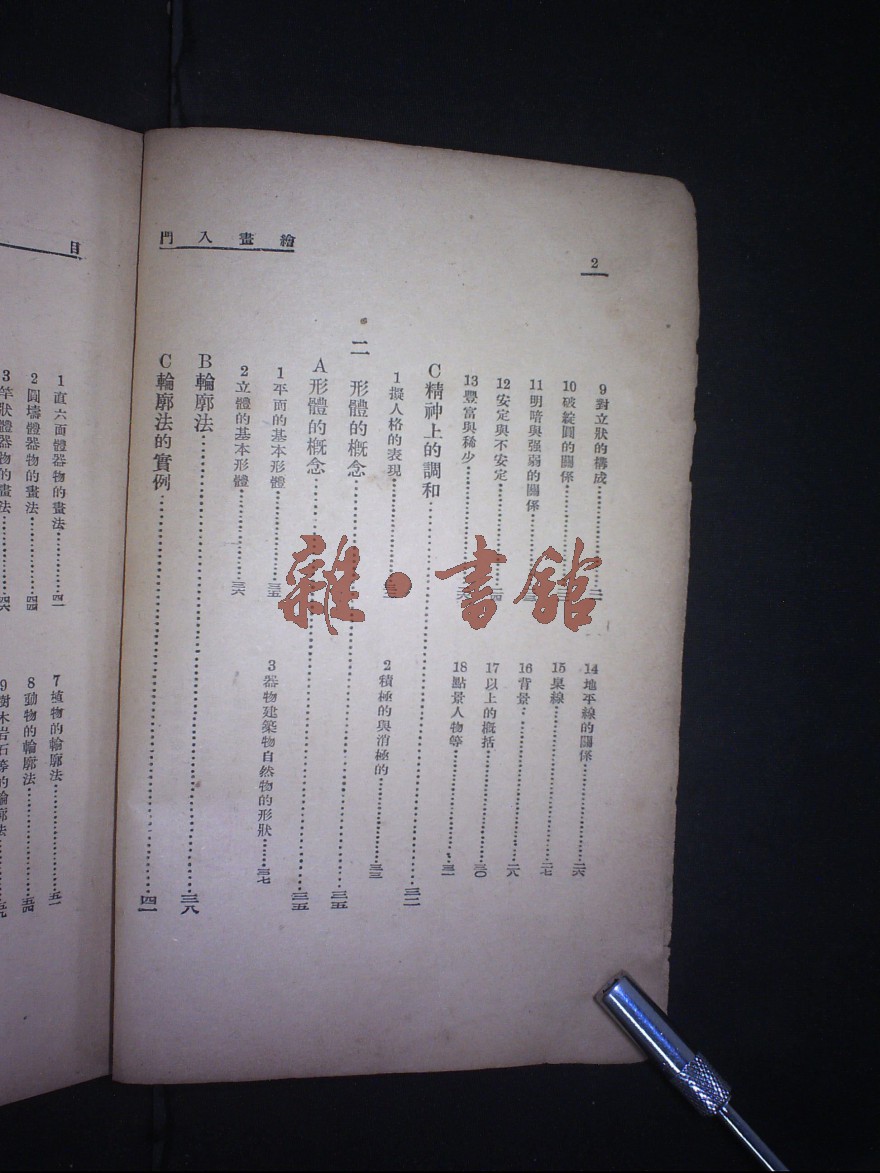 繪畫入門
2
9對立狀的構成
10破綻圓的關係
11明暗與强弱的關係
12安定與不安定
13豐富與稀少
14地平線的關係……二六
15臬線……二七
16背景……二八
17以上的概括……三〇
18點景人物等……三一
C精神上的調和……三二
1擬人格的表現
2積極的與消極的……三三
二 形體的概念……三五
A形體的概念……三五
1平面的基本形體……三五
2立體的基本形體……三六
3器物建築物自然物的形狀……三七
B輪廓法……三八
C輪廓法的實例……四一
目
1直六面體器物的畫法……四一
2圓壔體器物的畫法……四四
3竿狀體器物的畫法……四六
7植物的輪廓法……五一
8動物的輪廓法……五四
9樹木岩石等的輪廓法……五九
雜·書館